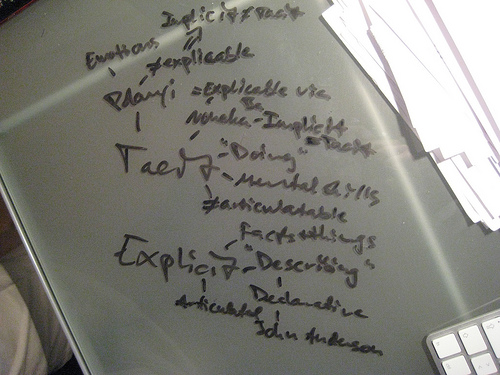 Implicit ≠ Tacit
Emotions
≠explicable
Polanyi = Explicable via
Ba
Nonaka - Implicit
= Tacit
Tacit - "Doing"
- Mental skills
≠articulatable
Facts + things
Explicit - "Describing"
Articulated Declarative
John Anderson